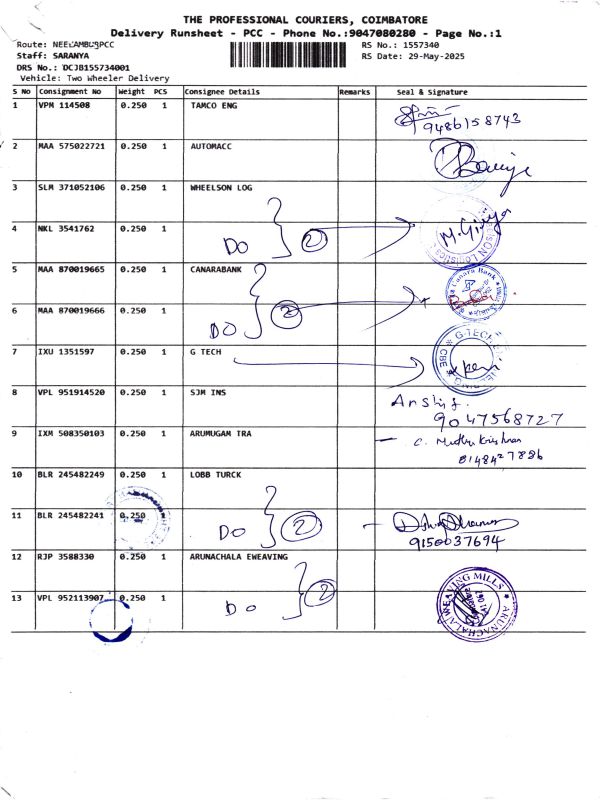 THE PROFESSIONAL COURIERS, COIMBATORE
Delivery Runsheet - PCC - Phone No.:9047080280 - Page No.:1
Route: NEELAMBURPCC
RS No.: 1557340
Staff: SARANYA
RS Date: 29-May-2025
DRS No.: DCJB155734001
Vehicle: Two Wheeler Delivery
S No Consignment No Weight PCS Consignee Details Remarks Seal & Signature
1 VPM 114508 0.250 1 TAMCO ENG
9486158743
2 MAA 575022721 0.250 1 AUTOMACC
3 SLM 371052106 0.250 1 WHEELSON LOG
4 NKL 3541762 0.250 1 DO 2 M. Giriya
5 MAA 870019665 0.250 1 CANARABANK
6 MAA 870019666 0.250 1 DO 2
7 IXU 1351597 0.250 1 G TECH
G-TECH
CBE
8 VPL 951914520 0.250 1 SJM INS
9047568727
9 IXM 508350103 0.250 1 ARUMUGAM TRA C. Muthu Krishnan
8148427886
10 BLR 245482249 0.250 1 LOBB TURCK
11 BLR 245482241 0.250 1 DO 2
9150037694
12 RJP 3588330 0.250 1 ARUNACHALA EWEAVING
13 VPL 952113907 0.250 1 DO 2
ARUNACHALA WEAVING MILLS